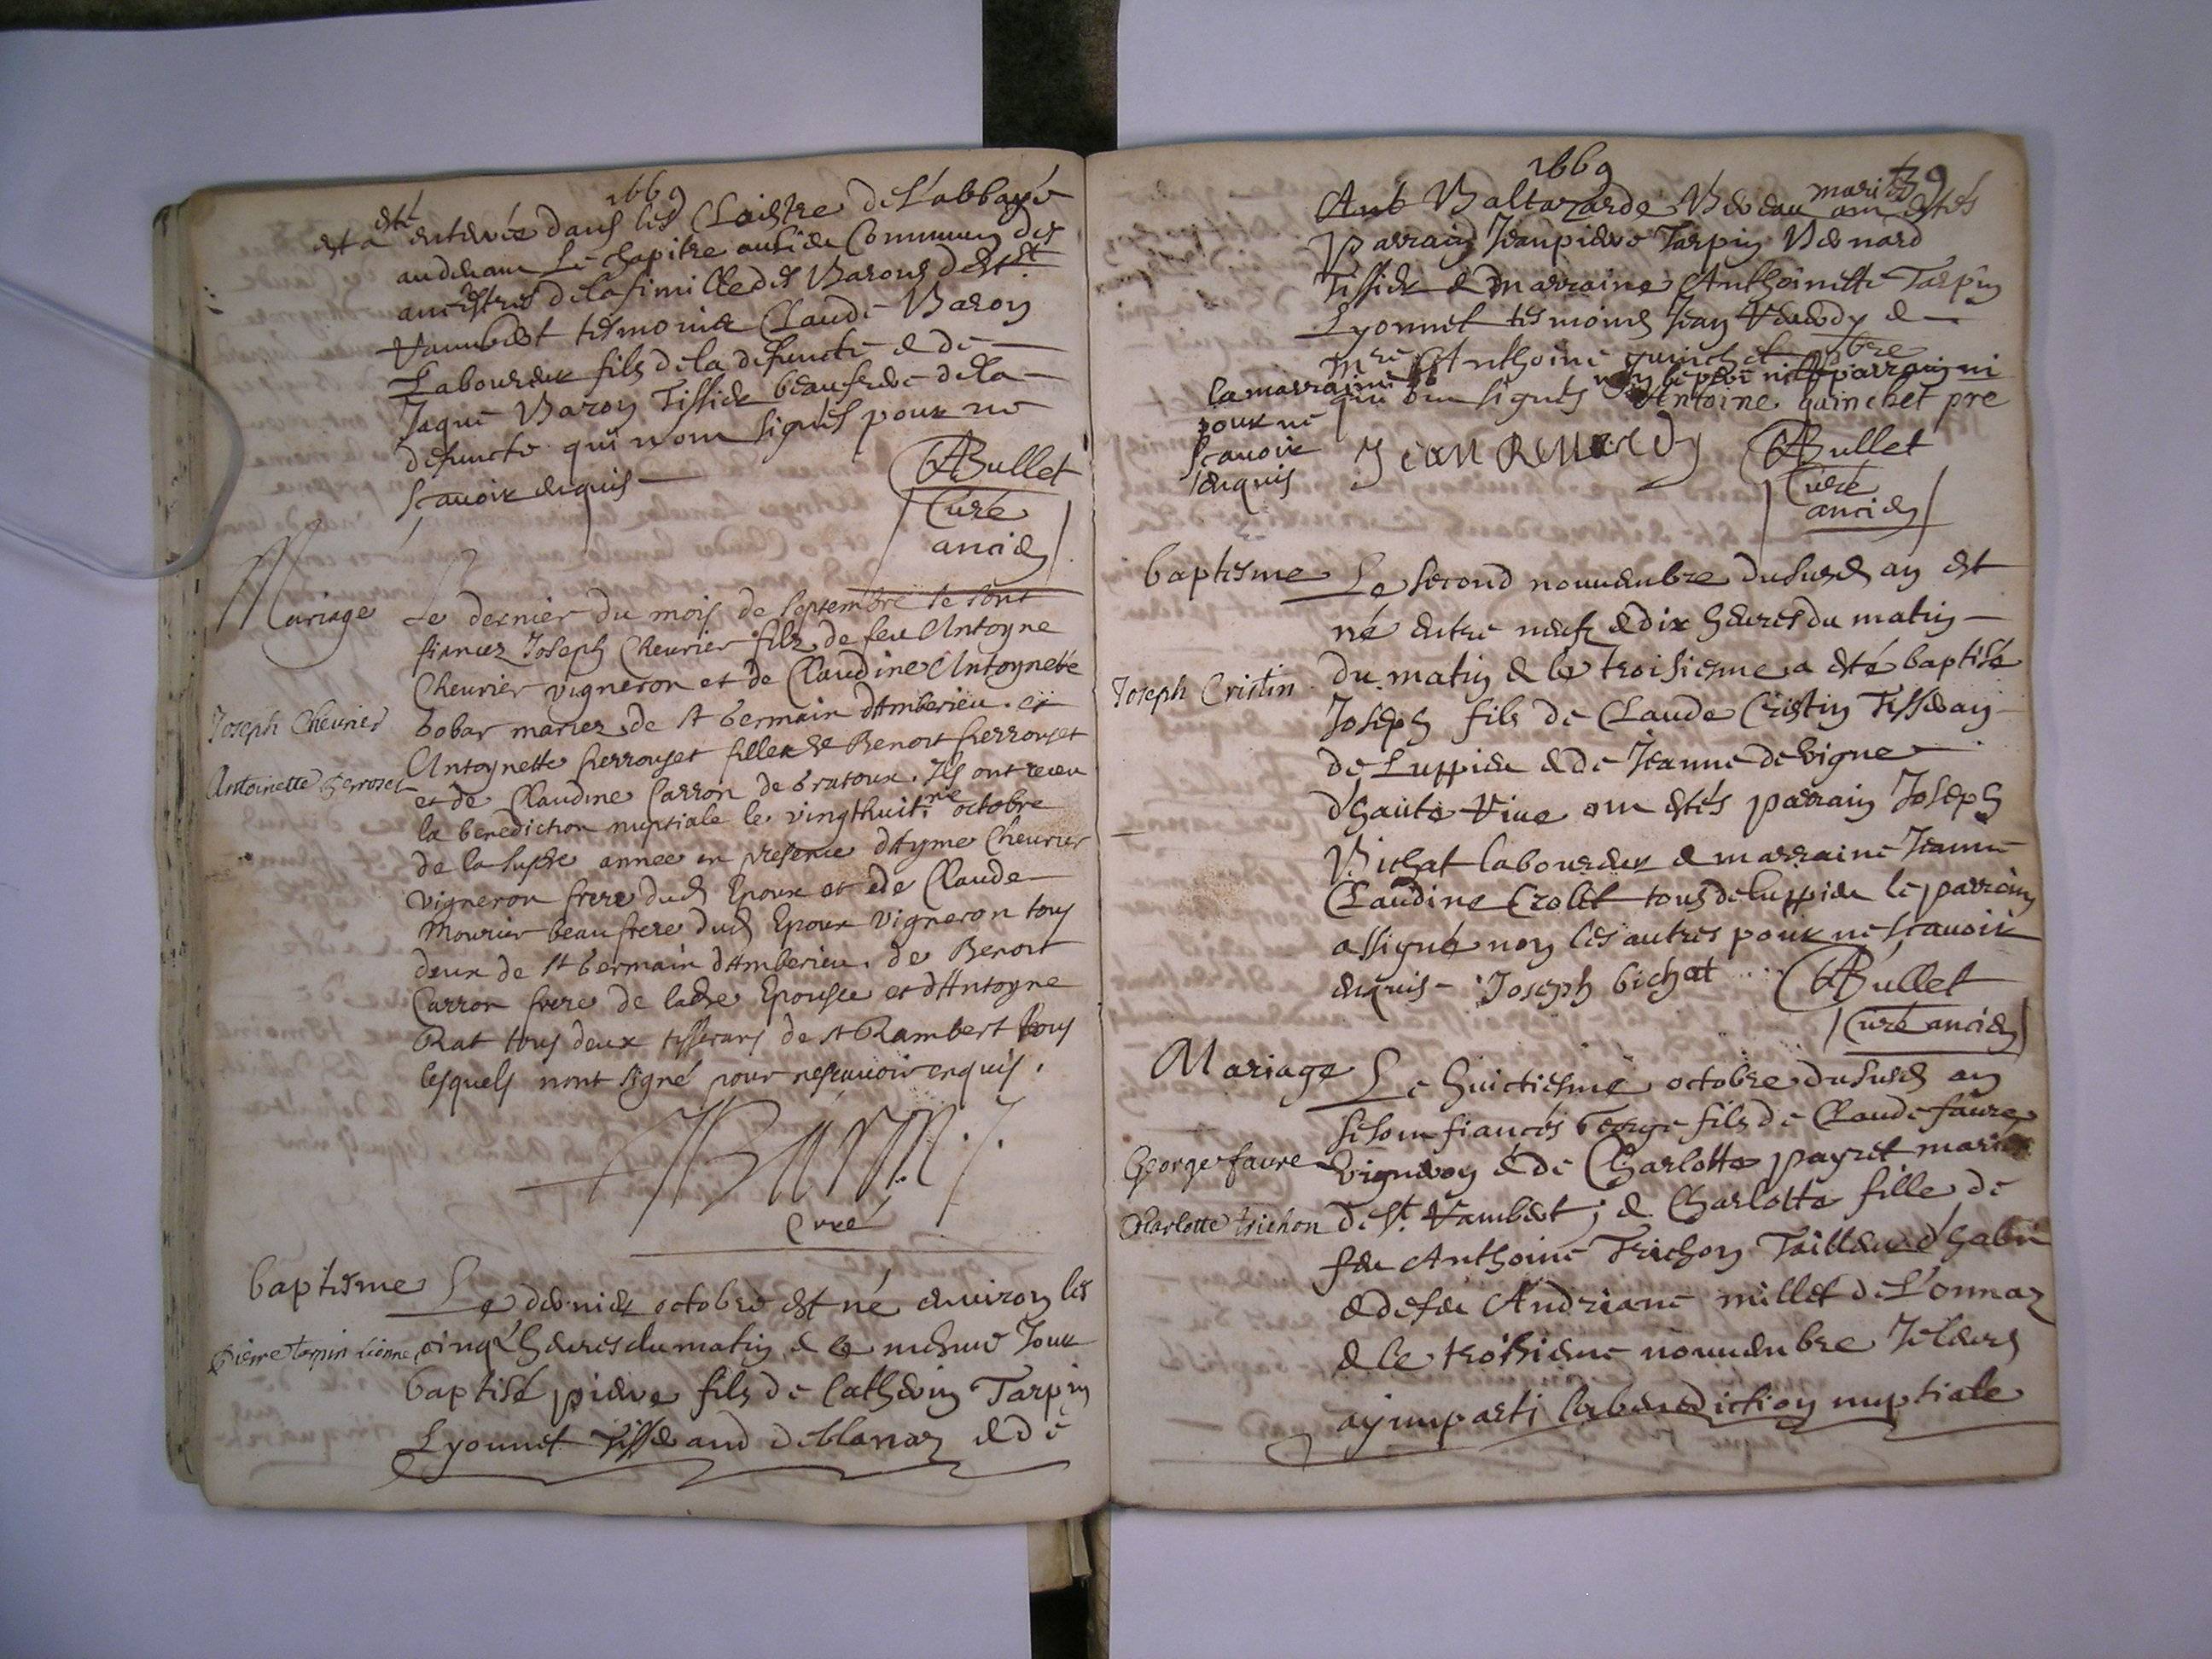 1669
et a esté enterrée dans les Cloistre de L'abbaye
au devant Le chapitre au lieu Commung des
ancestres de la fimille des Barons de St
Rambert tesmoings Claude Baron
Laboureur fils de la defuncte & de
Jaque Baron Tissier beaufrere de la
defuncte qui n'ont signés pour ne
scavoir enquis
ABullet
Curé
ancien
Mariage
Le dernier du mois de septembre se sont
fiancez Joseph Chevrier filz de feu Antoyne
Chevrier vigneron et de Claudine Antoynette
bobar mariez de st Germain d'Amberieu. et
Joseph Chevrier
Antoynette ferrouset fille de Benoit ferrouset
Antoinette ferroset
et de Claudine Carron de bratoux. Ils ont receu
la benediction nuptiale le vingthuit.me octobre
de la susde annee en presence d'Ayme Chevrier
vigneron frere dud Epoux et de Claude
Mourier beaufrere dud Epoux vigneron tous
deux de st Germain d'Amberieu. de Benoit
Carron frere de lade Epousee et d'Antoyne
Rat tous deux tisserans de st Rambert tous
lesquels n'ont signé pour ne scavoir enquis.
Curé
baptesme
Le dernier octobre est né environ les
Pierre Tarpin Lionne
cinq heures du matin & le mesme Jour
baptisé pierre fils de Catherin Tarpin
Lyonnet Tisserand de blanaz & de
1669
39
Ant Baltazarde Berdeau mariés ont estés
Parrain Jeanpierre Tarpin Bernard
Tissier & marraine Anthoinette Tarpin
Lyonnet tesmoins Jean Reverdy &
Mre Anthoine guinchet pbre
qui ont signés non le pere ni le parrain ni
la marraine
pour ne
scavoir
enquis
Antoine guinchet pre
Jean Reverdy
ABullet
Curé
ancien
baptesme
Le second novembre du susd an est
né entre neuf & dix heures du matin
du matin & le troisiesme a esté baptisé
Joseph Cristin
Joseph fils de Claude Cristin Tisseran
de Luppieu & de Jeanne devigne
d'haute Rive ont estés parrain Joseph
Bichat laboureur & marraine Jeanne
Claudine Crolet tous de Luppieu le parrain
a signé non les autres pour ne scavoir
enquis - Joseph bichat
ABullet
Curé ancien
Mariage
Le huictiesme octobre du susd an
se sont fiancés George fils de Claude faure
George faure
vigneron & de Charlotte payret mariés
Charlotte trichon
de St. Rambert; & Charlotte fille de
feu Anthoine Trichon Tailleur d'habit
& de feu Andriane millet de L'onnaz
& le troisieme novembre Je leurs
ay imparti la benediction nuptiale